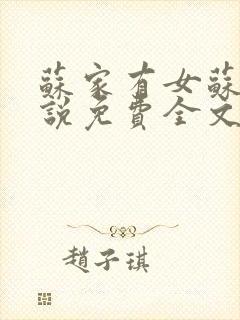 蘇家有女蘇
說免費全文
趙子琪